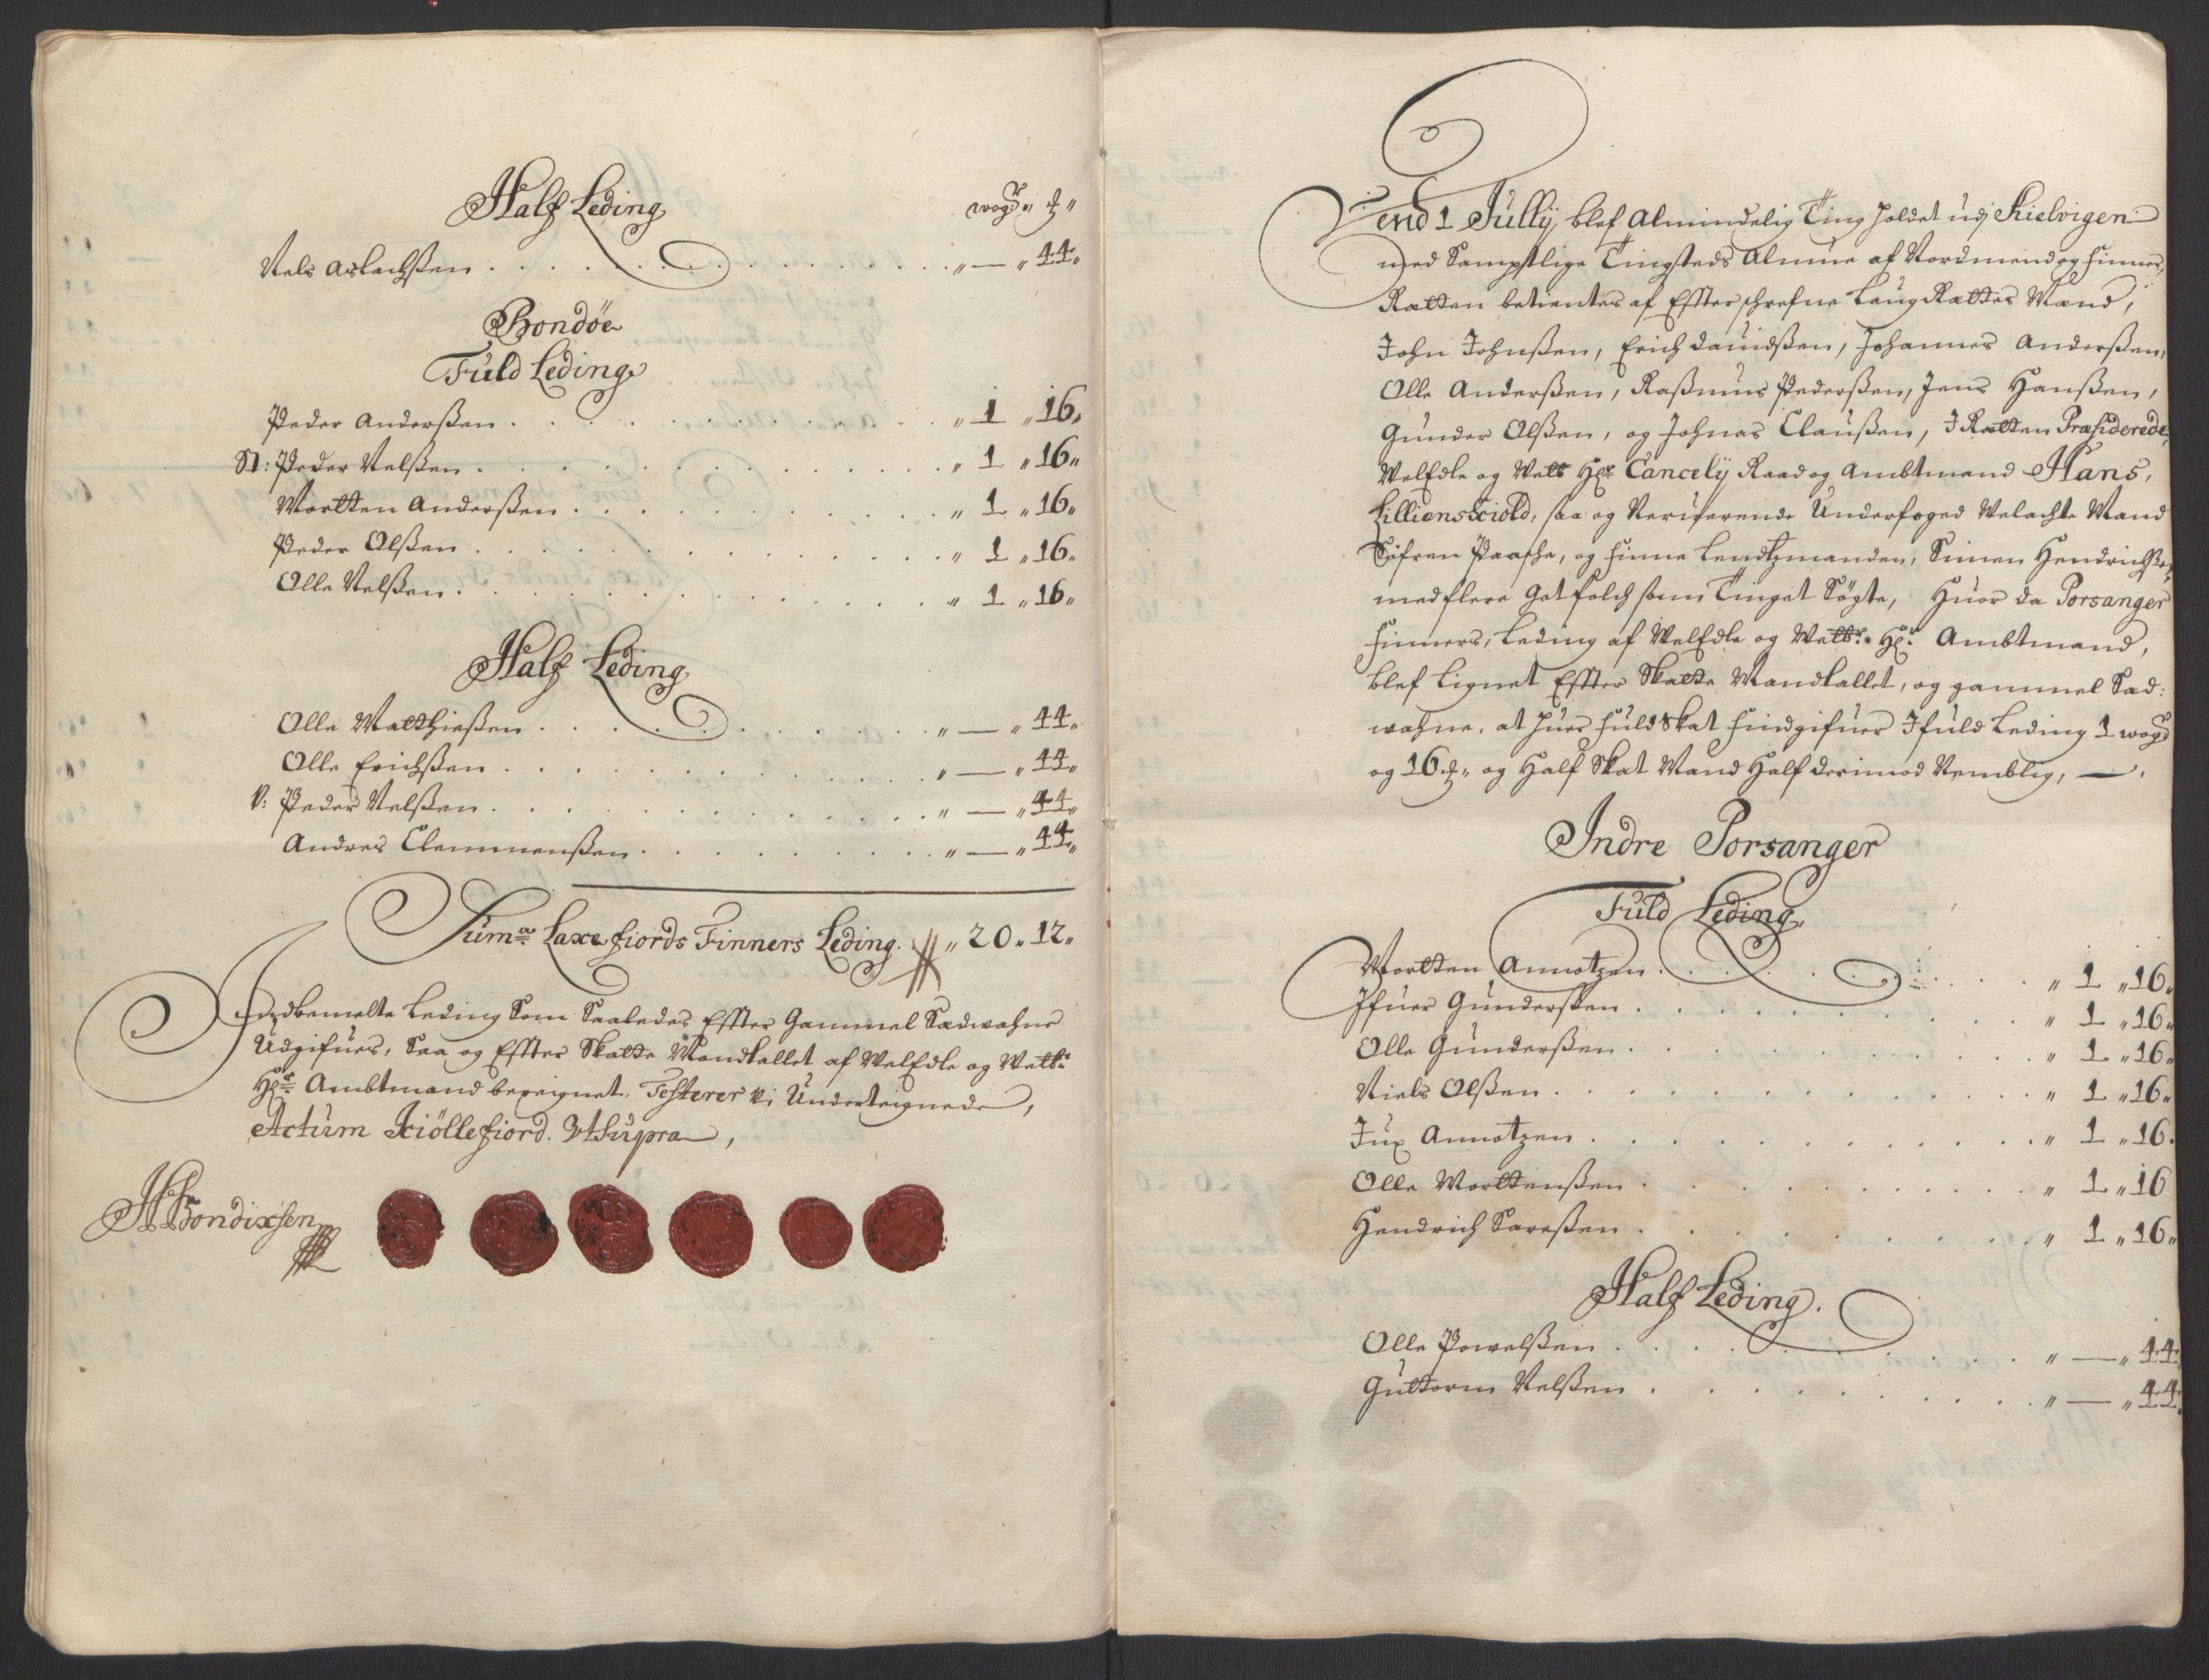 Half Leding
wogr „ ℔ „
Nels Aslachßen . . . „ — „ 44 „
Bondöe
Fuld Leding
Peder Anderßen . . . „ 1 „ 16 „
St: Peder Nelßen . . . „ 1 „ 16 „
Mortten Anderßen . . . „ 1 „ 16 „
Peder Olßen . . . „ 1 „ 16 „
Olle Nelßen . . . „ 1 „ 16 „
Half Leding
Olle Matthießen . . . „ — „ 44 „
Olle Erichßen . . . „ — „ 44 „
V: Peder Nelßen . . . „ — „ 44 „
Andres Clemmenßen . . . „ — „ 44 „
Suma Laxefiords Finners Leding „ 20 „ 12 „
Indbemelte Leding Som Saaledes Effter Gammel Sædwahne
Udgifues, Saa og Effter Skatte Mandtallet af WelEdle og Welb:
Hr Ambtmand beregnet. Testerer vi Underteignede,
Actum Kiöllefiord. Ut Supra,
H Bendixsen
Dend 1 Jullij, blef Almindelig Ting holdet udj Kielvigen
med Samptlige Tingsteds Almue af Nordmend og Finner,
Rætten betientes af Effterschrefne LaugRættes Mænd,
John Johnßen, Erich Dauidßen, Johannes Anderßen,
Olle Anderßen, Raßmus Pederßen, Jens Hanßen,
Gunder Olßen, og Johnas Claußen, I Rætten Præsiderede,
WelEdle og Welb Hr Cancelij Raad og Ambtmand Hans,
Lilliensciold, saa og Nerværende Underfoged Welachte Mand
Söfren Paasche, og Finne Lendtzmanden, Simen Hendrichßen,
med flere Got folch som Tinget Sögte, Huor da Porsanger
Finners, Leding af WelEdle og Welbr. Hr. Ambtmand,
blef Lignet Effter Skatte Mandtallet, og gammel Sæd:
wahne, at huer fuld Skat Find gifuer I fuld Leding 1 wogr
og 16 ℔. og Half Skat Mand Half derimod Nemblig, —.
Indre Porsanger
Fuld Leding.
Mortten Amotzen . . . „ 1 „ 16 „
Ifuer Gunderßen . . . „ 1 „ 16 „
Olle Gunderßen . . . „ 1 „ 16 „
Niels Olßen . . . „ 1 „ 16 „
Jux Amotzen . . . „ 1 „ 16 „
Olle Morttenßen . . . „ 1 „ 16
Hendrich Sareßen . . . „ 1 „ 16 „
Half Leding.
Olle Powelßen . . . „ — „ 44
Guttorm Nelßen . . . „ — „ 44